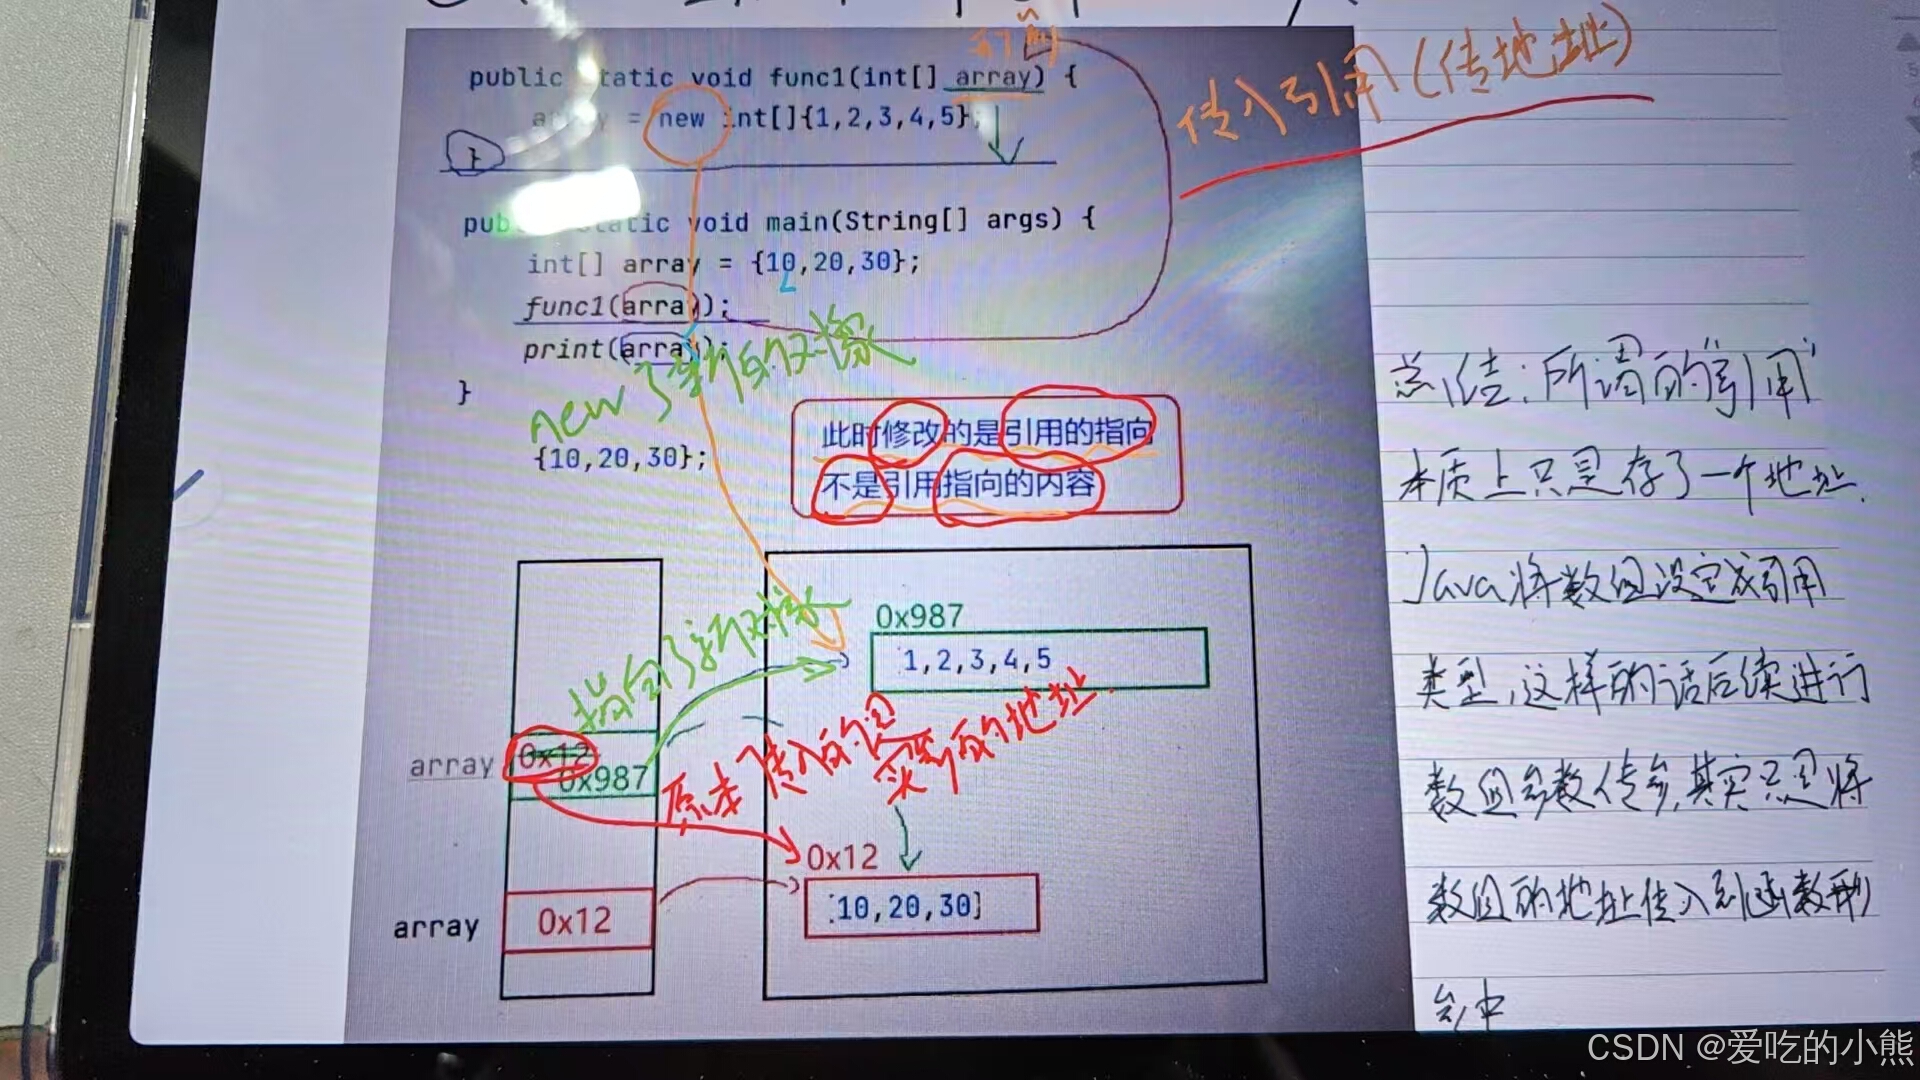 形参
public static void func1(int[] array) {
array = new int[]{1,2,3,4,5};
}
传入引用(传地址)
public static void main(String[] args) {
int[] array = {10,20,30};
func1(array);
print(array);
}
new了新的对象
{10,20,30};
此时修改的是引用的指向
不是引用指向的内容
总结:所谓的"引用"
本质上只是存了一个地址.
Java将数组设定成引用
类型,这样的话后续进行
数组参数传参,其实只是将
数组的地址传入到函数形
参中
0x987
1,2,3,4,5
指向了新对象
array
0x12
0x987
原本传入的是
实参的地址.
0x12
[10,20,30]
array
0x12
CSDN @爱吃的小熊